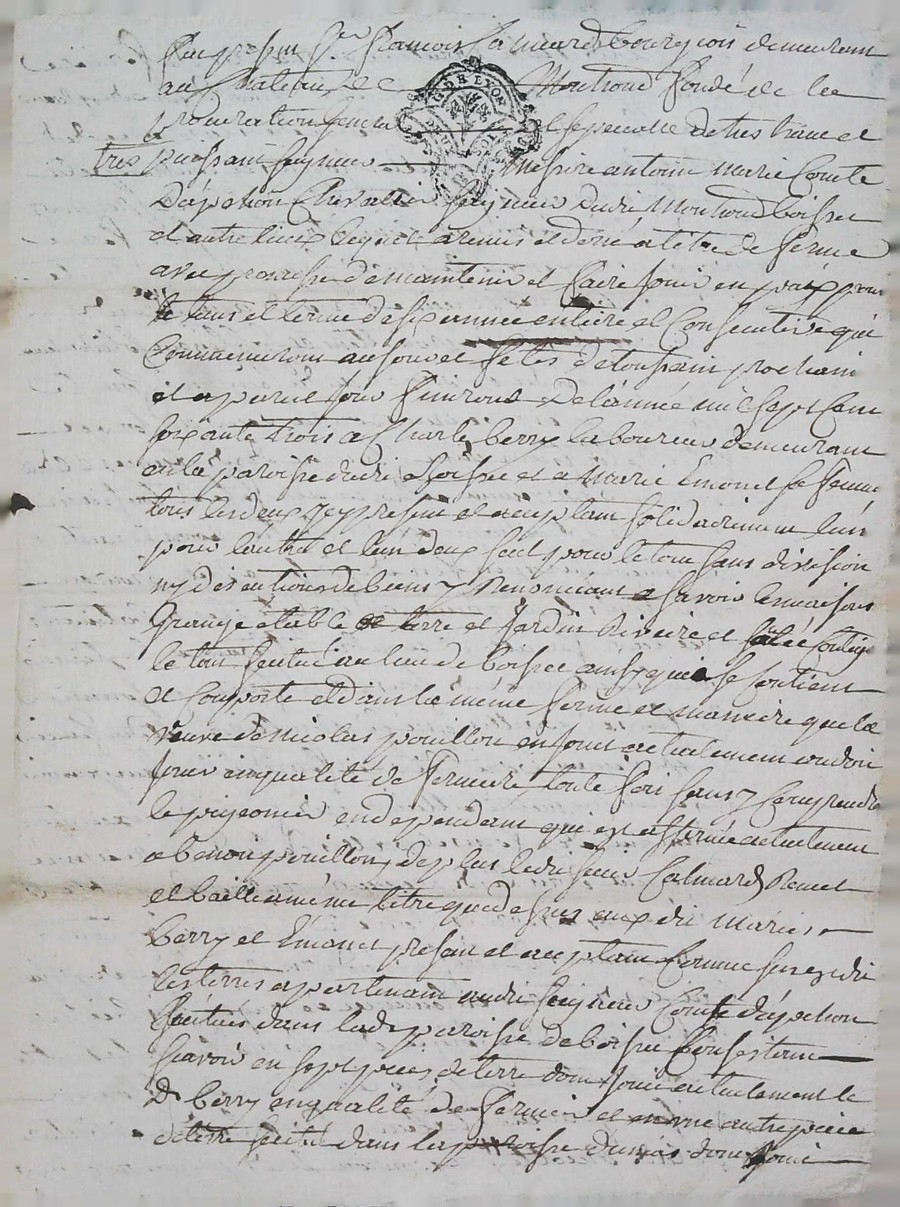 fut present Sr francois Calmard bourgeois demeurant
au Chateau de Montrond fondé de la
procuration generalle et specialle de tres haut et
tres puissant seigneur messire antoine marie Comte
D'apchon Chevallier seigneur dudit Montrond boisset
et autre lieux lequel a remis et doné a titre de ferme
avec promesse de maintenir et faire jouir en paix pour
le tems et terme de six année entiere et Consecutive qui
Commenceront au jour et fetes de toussain prochain
et a pareil jour finiront De l'année mil sept cent
soixante trois a Charle berry laboureur demeurant
en la paroisse dudit boisset et a Marie Emonet sa femme
tous les deux icy present et aceptant solidairement l'un
pour l'autre et l'un deux seul pour le tout sans division
ny discutions de biens y Renonciant a savoir les maisons
Grange etable terre et Jardin Riviere et
le tout scitué au lieu de boisset ainsy qu'il se Contient
et Comporte et dans la méme forme et maniere que la
veuve de nicolas pouillon en jouit actuelement ou doit
jouir en qualité de fermiere toute fois sans y Comprendre
le pigeonier endependant qui est affermé actuelement
a benoit pouillon, de plus ledit sieur Calmard Remet
et baille a méme titre que dessus aux dit Mariés
berry et Émonet present et aceptant Comme susesdit
les terres apartenant audit seigneur Comte d'apchon
scitués dans lad. paroisse de boisset Consestant
scavoir en sept pieces de terre dont jouit actuelement le
D. berry en qualité de fermier et autre piece
de terre scitué dans la paroisse dunias dont jouit